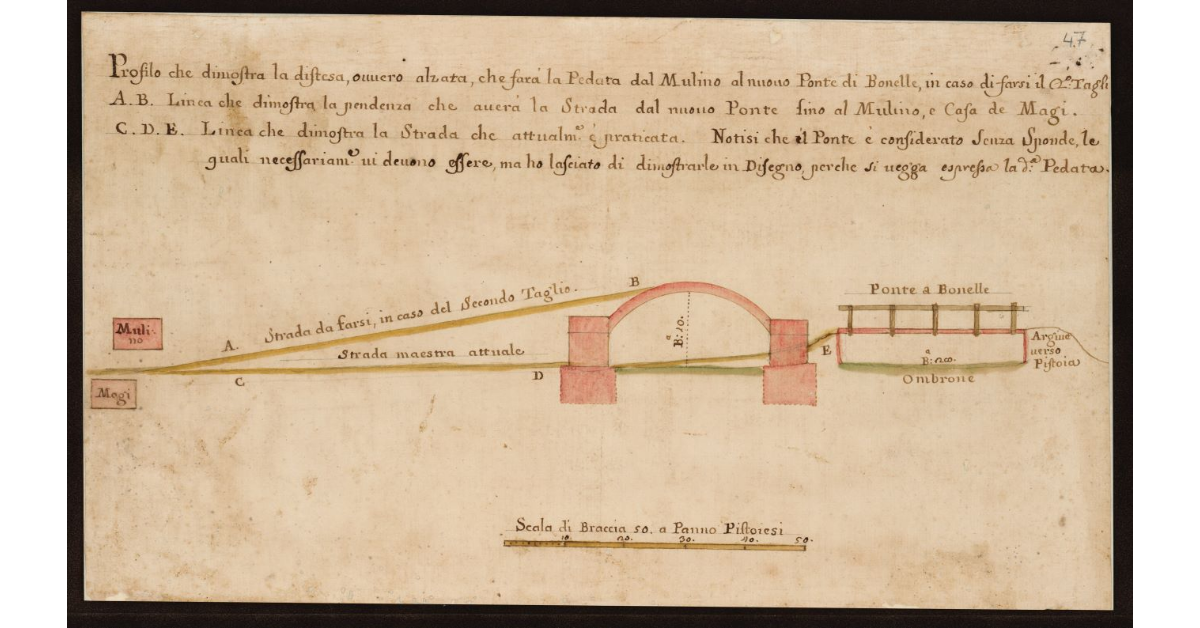 47
Profilo che dimostra la distesa, ovvero alzata, che farà la Pedata dal Mulino al nuovo Ponte di Bonelle, in caso di farsi il 2.º Tagli
A. B. Linea che dimostra la pendenza che averà la Strada dal nuovo Ponte sino al Mulino, e Casa de Magi.
C. D. E. Linea che dimostra la Strada che attualm.e è praticata. Notisi che il Ponte è considerato Senza Sponde, le
quali necessariam.e vi devono essere, ma ho lasciato di dimostrarle in Disegno, perche si vegga espressa la d.a Pedata.
B
Ponte a Bonelle
Strada da farsi, in caso del Secondo Taglio.
Muli-
no
A.
B.a 20.
Strada maestra attuale
E
Argine
verso
Pistoia
B.a 20.
C
D
Ombrone
Magi
Scala di Braccia 50. a Panno Pistoresi
10. 20. 30. 40. 50.